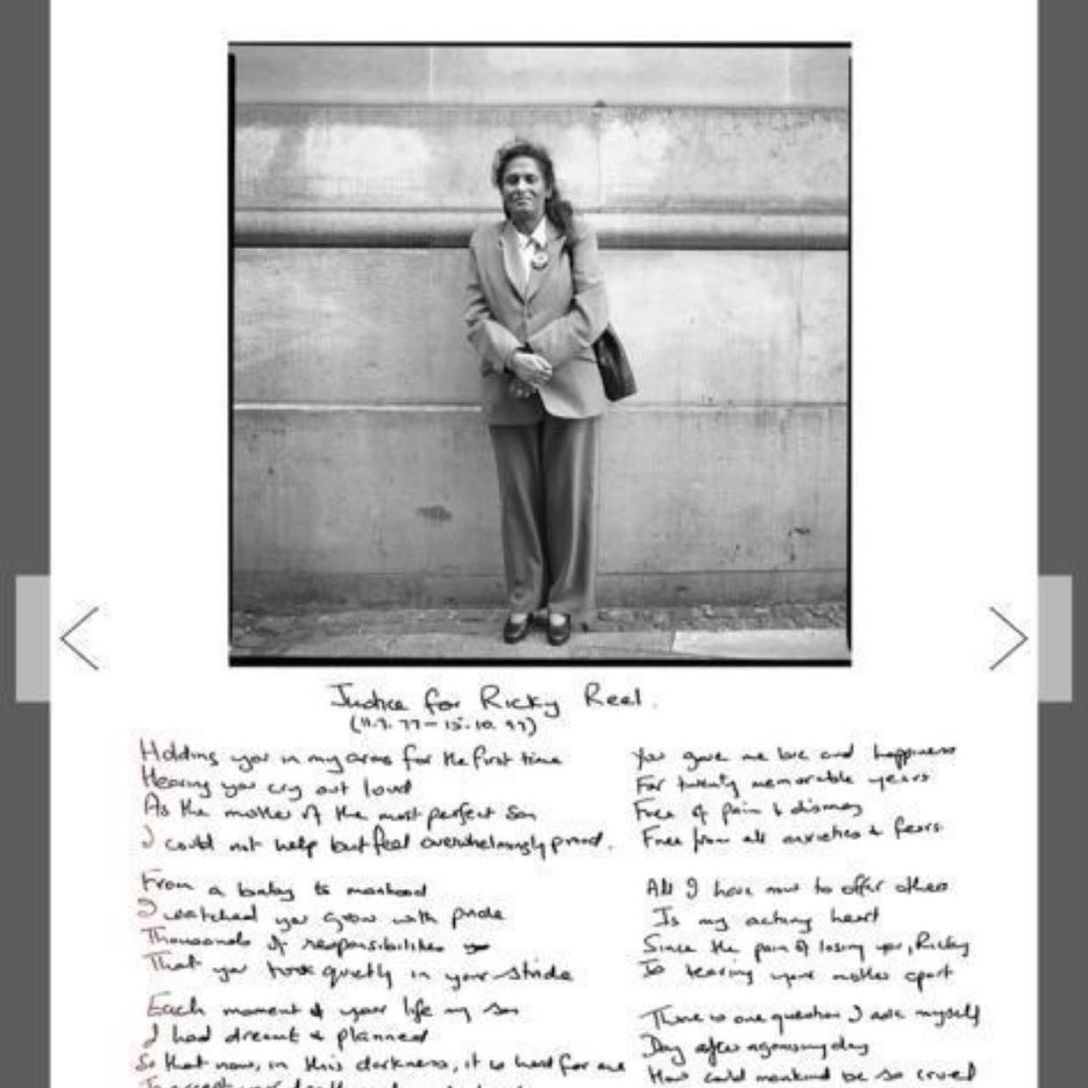 Justice for Ricky Reel.
(11.9.77-15.10.97)
Holding you in my arms for the first time
Hearing you cry out loud
As the mother of the most perfect son
I could not help but feel overwhelmingly proud.
From a baby to manhood
I watched you grow with pride
Thousands of responsibilities
That you took quietly in your stride
Each moment of your life my son
I had dreamt & planned
So that now, in this darkness, it is hard for me
You gave me love and happiness
For twenty memorable years
Free of pain & dismay
Free from all anxieties & fears.
All I have now to offer others
Is my aching heart
Since the pain of losing you, Ricky
Is tearing your mother apart
There is one question I ask myself
Day after agonising day
How could mankind be so cruel